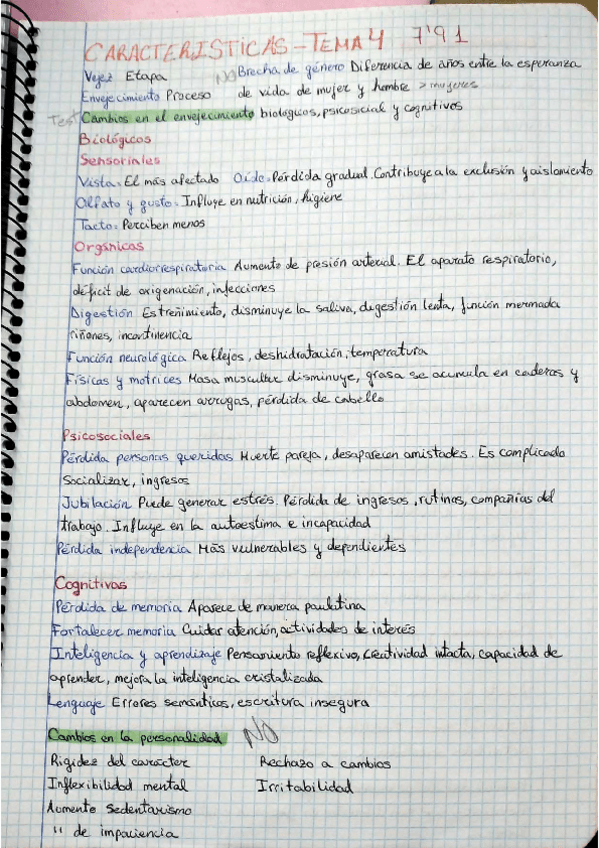 CARACTERISTICAS - TEMA 4 7'91
Vejez Etapa NO Brecha de género Diferencia de años entre la esperanza
Envejecimiento Proceso de vida de mujer y hombre > mujeres
Test Cambios en el envejecimiento biológicos, psicosicial y cognitivos
Biológicos
Sensoriales
Vista. El más afectado Oído. Pérdida gradual. Contribuye a la exclusión y aislamiento
Olfato y gusto. Influye en nutrición, higiene
Tacto. Perciben menos
Orgánicas
Función cardiorrespiratoria Aumento de presión arterial. El aparato respiratorio,
déficit de oxigenación, infecciones
Digestión Estreñimiento, disminuye la saliva, digestión lenta, función mermada
riñones, incontinencia
Función neurológica Reflejos, deshidratación, temperatura
Físicas y motrices Masa muscular disminuye, grasa se acumula en caderas y
abdomen, aparecen arrugas, pérdida de cabello
Psicosociales
Pérdida personas queridas Muerte pareja, desaparecen amistades. Es complicado
socializar, ingresos
Jubilación Puede generar estrés. Pérdida de ingresos, rutinas, compañias del
trabajo. Influye en la autoestima e incapacidad
Pérdida independencia Más vulnerables y dependientes
Cognitivas
Pérdida de memoria Aparece de manera paulatina
Fortalecer memoria Cuidar atención, actividades de interés
Inteligencia y aprendizaje Pensamiento reflexivo, creatividad intacta, capacidad de
aprender, mejora la inteligencia cristalizada
Lenguaje Errores semánticos, escritura insegura
Cambios en la personalidad NO
Rigidez del carácter Rechazo a cambios
Inflexibilidad mental Irritabilidad
Aumento Sedentarismo
" de impaciencia